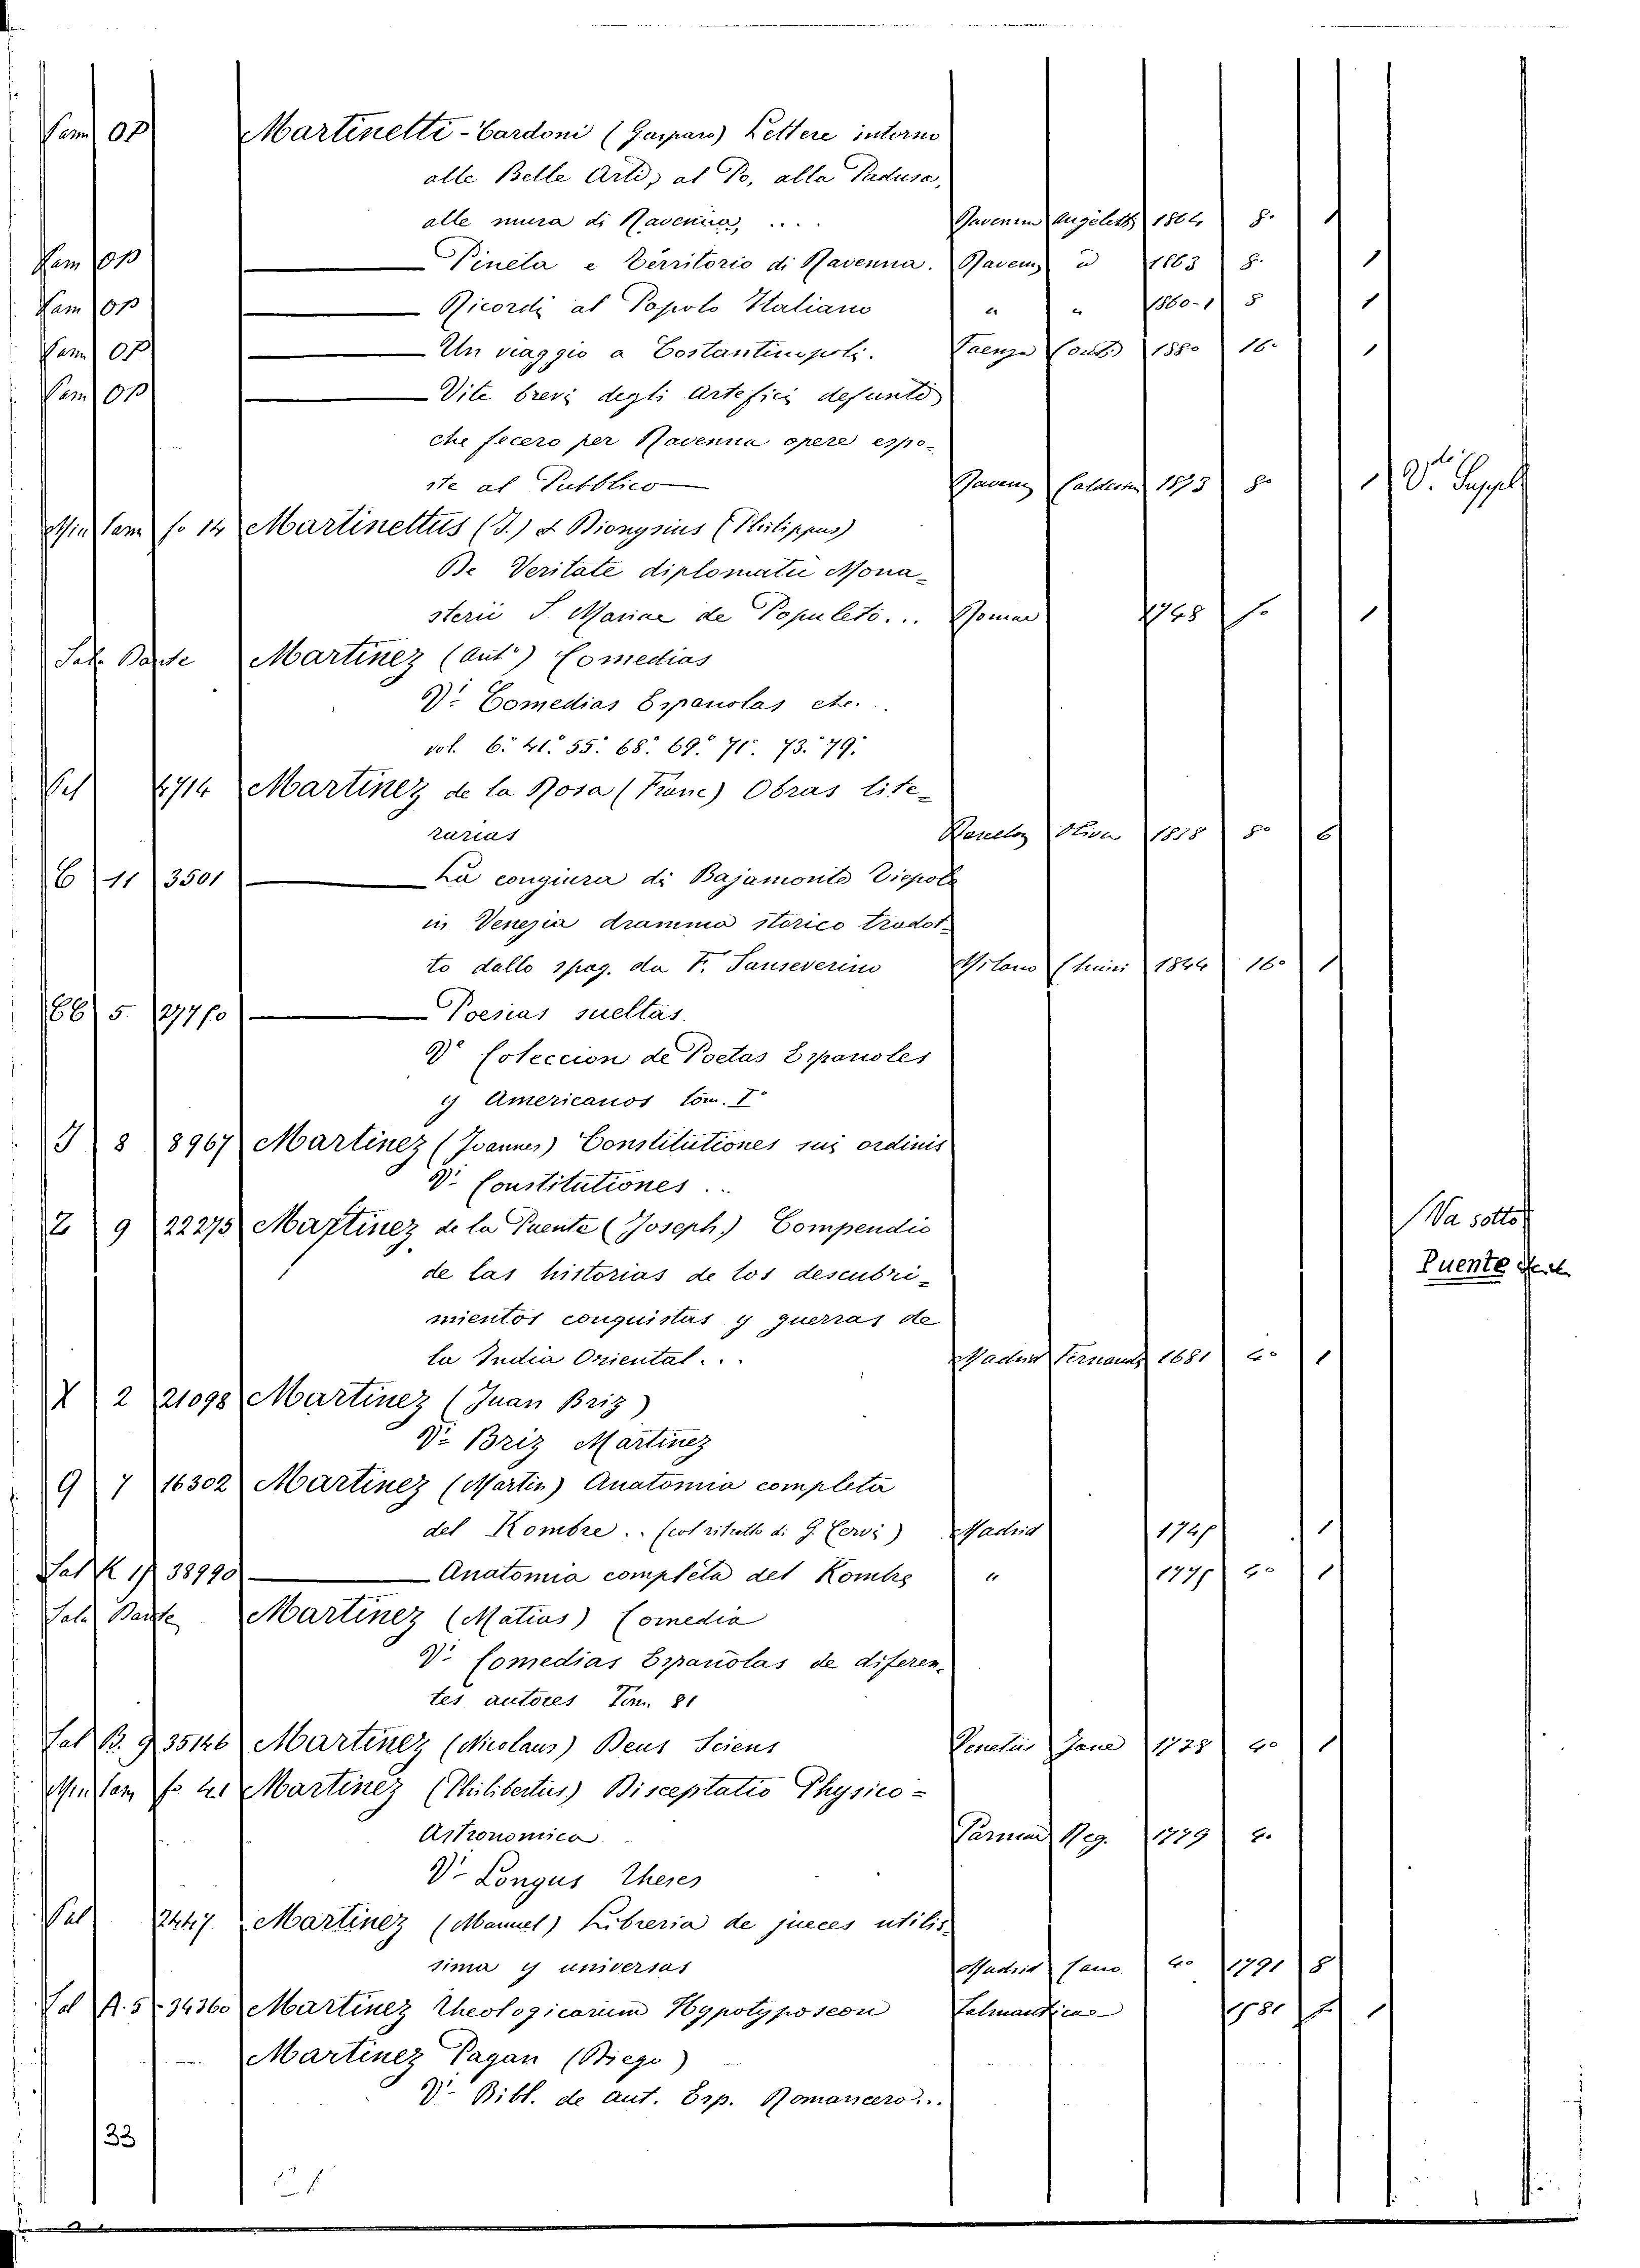 Martinetti-Cardoni (Gasparo) Lettere intorno
alle Belle Arti, al Po, alla Padusa,
alle mura di Ravenna, .... Angeletti 1864 8°
Pineta e Territorio di Ravenna. 1863 8° 1
Ricordi al Popolo Italiano " " 1860-1 8 1
Un viaggio a Costantinopoli. Faenza Conti 1880 16° 1
Vite brevi degli Artefici defunti
che fecero per Ravenna opere espo-
ste al Pubblico Calderini 1873 8° 1 Suppl
f° 14 Martinettus (J.) & Dionysius (Philippus)
De Veritate diplomatii Mona-
sterii S. Mariae de Populeto... Romae 1748 f° 1
Sala Dante Martinez (Ant°) Comedias
V. Comedias Espanolas etc...
vol. 6° 41° 55° 68° 69° 71° 73° 79°
4714 Martinez de la Rosa (Franc) Obras lite-
rarias Oliva 1838 8° 6
6 11 3501 La congiura di Bajamonte Tiepolo
in Venezia dramma storico tradot-
to dallo spag. da F. Sanseverino Milano 1844 16° 1
66 5 Poesias sueltas.
V. Coleccion de Poetas Espanoles
y Americanos tom. I°
J 8 8967 Martinez (Joannes) Constitutiones sui ordinis
V. Constitutiones...
Z 9 22275 Martinez de la Puente (Joseph.) Compendio Va sotto
Puente
de las historias de los descubri-
mientos conquistas y guerras de
la India Oriental... Fernand 1681 4° 1
X 2 21098 Martinez (Juan Briz)
V. Briz Martinez
9 7 16302 Martinez (Martin) Anatomia completa
del Hombre... (col ritratto di G. Cervi) Madrid 1
38990 Anatomia completa del Hombre " 4° 1
Sala Dante Martinez (Matias) Comedia
V. Comedias Espanolas de diferen-
tes autores Tom. 21
B. 9 35146 Martinez (Nicolaus) Deus Sciens Venetiis Jane 1738 4° 1
Martinez (Philibertus) Disceptatio Physico-
Astronomica Reg. 1779 4°
V. Longus Theses
2447. Martinez (Manuel) Libreria de jueces utilis-
sima y universal Madrid Cano 4° 1791 8
A. 5 34360 Martinez Theologicarum Hypotyposeon Salmanticae 1
Martinez Pagan (Diego)
V. Bibl. de aut. Esp. Romancero...
33